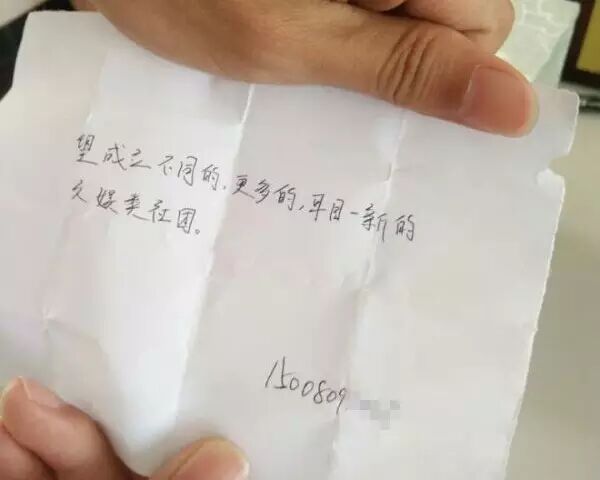 望成立不同的,更多的,耳目一新的
文娱类社团。
1500809